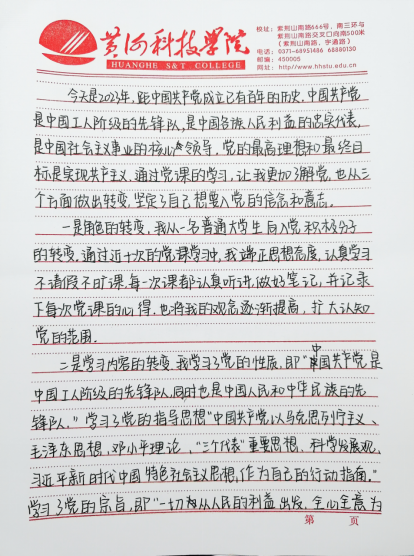 黄河科技学院
HUANGHE S&T COLLEGE
校址：紫荆山南路666号，南三环与
紫荆山南路交叉口向南500米
（紫荆山南路、宇通路）
电话：0371-68951486 68880130
邮编：450005
网址：http://www.hhstu.edu.cn
今天是2023年，距中国共产党成立已有百年的历史，中国共产党
是中国工人阶级的先锋队，是中国各族人民利益的忠实代表，
是中国社会主义事业的核心领导，党的最高理想和最终目
标是实现共产主义，通过党课的学习，让我更加了解党，也从三
个方面做出转变，坚定了自己想要入党的信念和意志。
一是角色的转变，我从一名普通大学生向入党积极分子
的转变，通过近十次的党课学习中，我端正思想态度，认真学习
不请假不旷课，每一次课都认真听讲，做好笔记，并记录
下每次党课的心得，也将我的观念逐渐提高，扩大认知
党的范围。
二是学习内容的转变，我学习了党的性质，即“中国共产党是
中国工人阶级的先锋队，同时也是中国人民和中华民族的先
锋队。”学习了党的指导思想“中国共产党以马克思列宁主义、
毛泽东思想、邓小平理论、“三个代表”重要思想、科学发展观、
习近平新时代中国特色社会主义思想，作为自己的行动指南。”
学习了党的宗旨，即“一切为从人民的利益出发，全心全意为
第 页